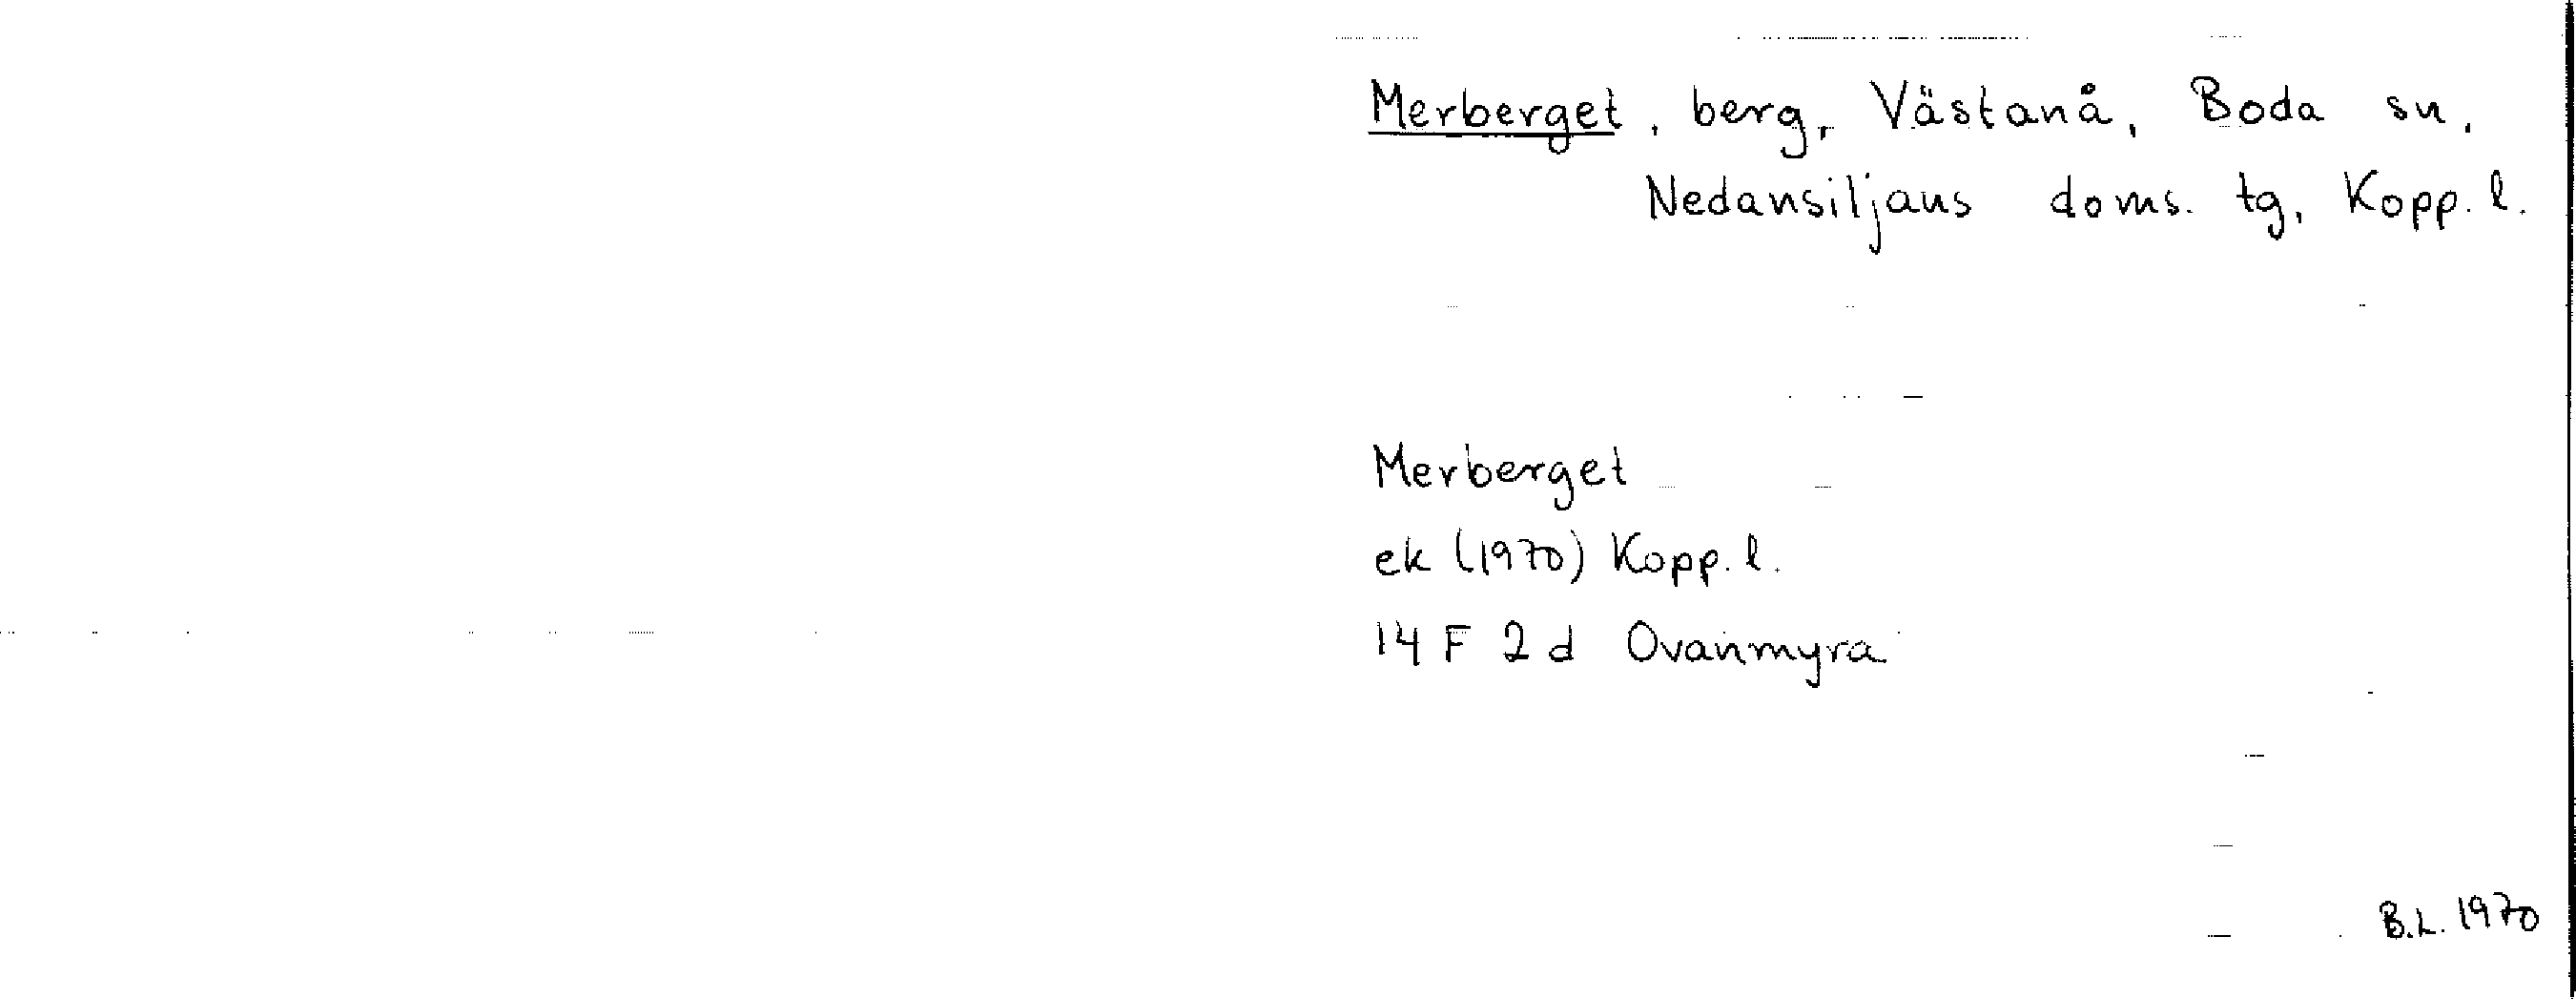 Merberget, berg, Västanå, Boda sn,
Nedansiljans doms. tg, Kopp. l.
Merberget
ek (1970) Kopp. l.
14 F 2 d Ovanmyra
B.L. 1970